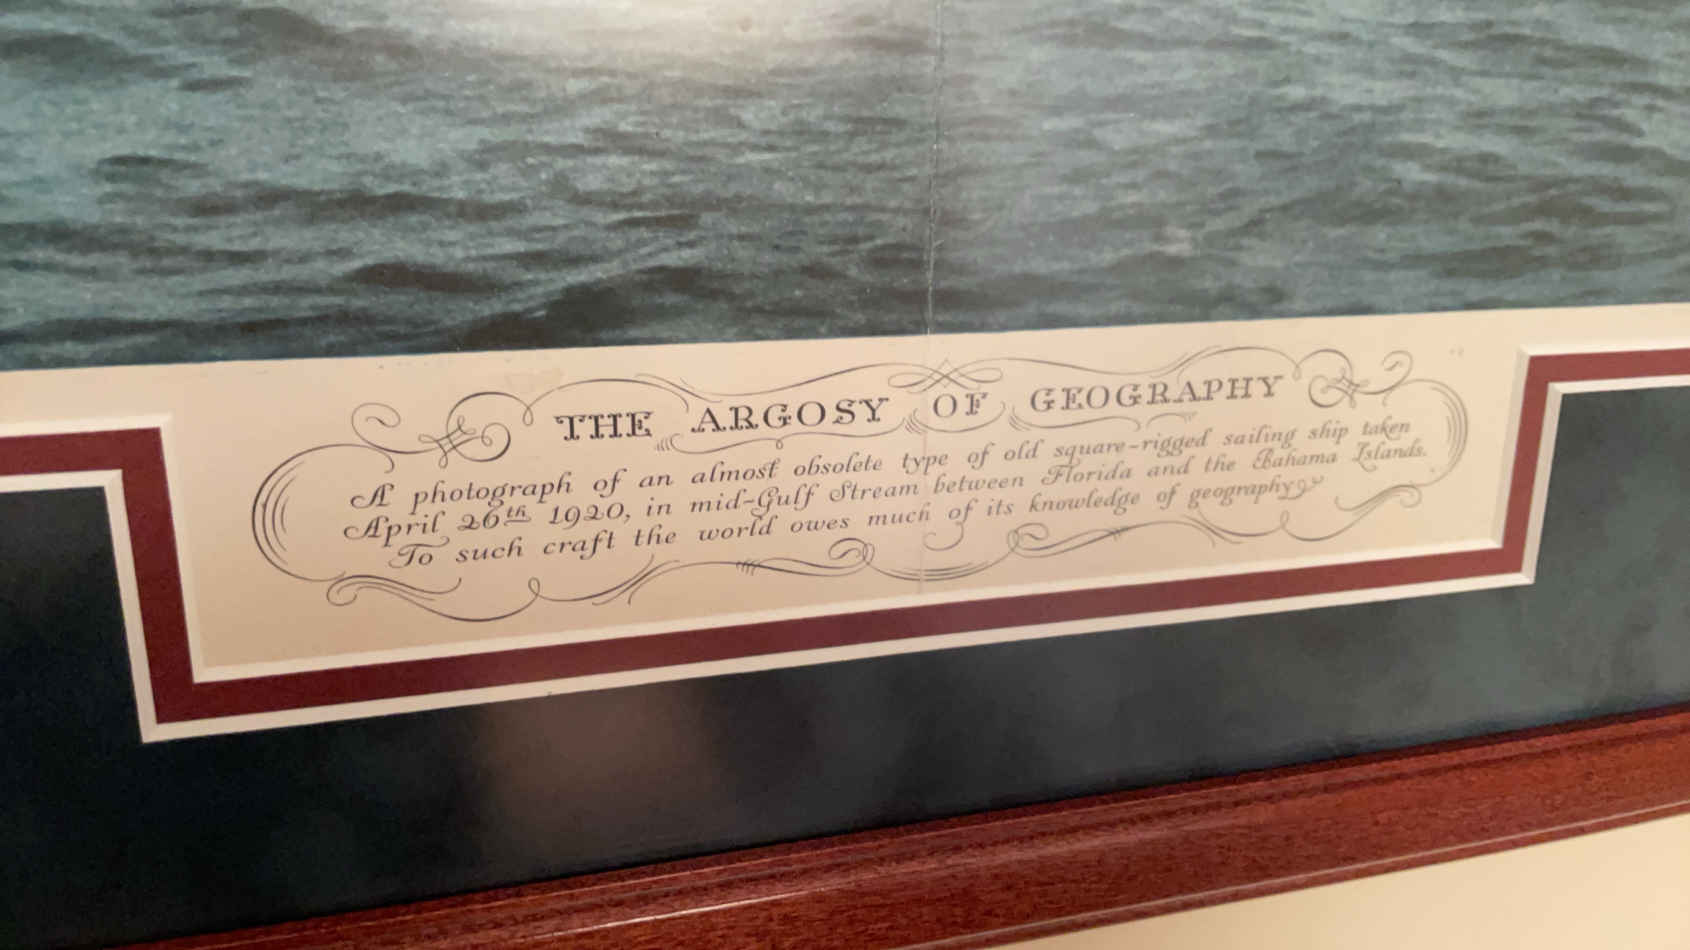 THE ARGOSY OF GEOGRAPHY
A photograph of an almost obsolete type of old square-rigged sailing ship taken
April 26th 1920, in mid-Gulf Stream between Florida and the Bahama Islands.
To such craft the world owes much of its knowledge of geography